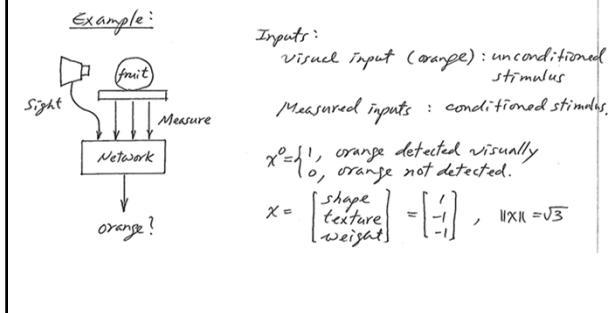 Example:
fruit
Sight
Measure
Network
orange?
Inputs:
visual input (orange): unconditioned
stimulus
Measured inputs : conditioned stimulus.
x⁰={1, orange detected visually
0, orange not detected.
x = [shape texture weight] = [1 -1 -1], ||x|| = √3